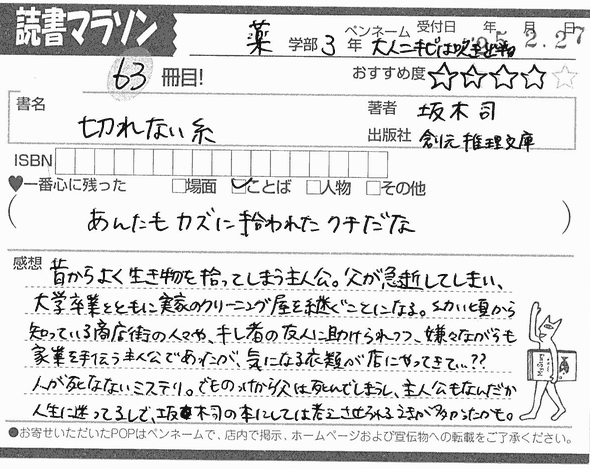 読書マラソン
薬 学部 3 年 ペンネーム 大人ニキビは吹き出物 受付日 年 月 日
25 2.27
63 冊目! おすすめ度 ☆☆☆☆☆
書名 切れない糸
著者 坂木司
出版社 創元推理文庫
ISBN
♥一番心に残った □場面 ☑ことば □人物 □その他
(あんたもカズに拾われたクチだな)
感想 昔からよく生き物を拾ってしまう主人公。父が急逝してしまい、
大学卒業とともに実家のクリーニング屋を継ぐことになる。幼い頃から
知っている商店街の人々や、キレ者の友人に助けられつつ、嫌々ながらも
家業を手伝う主人公であったが、気になる衣類が店にやってきて…??
人が死なないミステリ。でものっけから父は死んでしまうし、主人公もなんだか
人生に迷ってるしで、坂木司の本にしては考えさせられる話が多かったかも。
●お寄せいただいたPOPはペンネームで、店内で掲示、ホームページおよび宣伝物への転載をご了承ください。